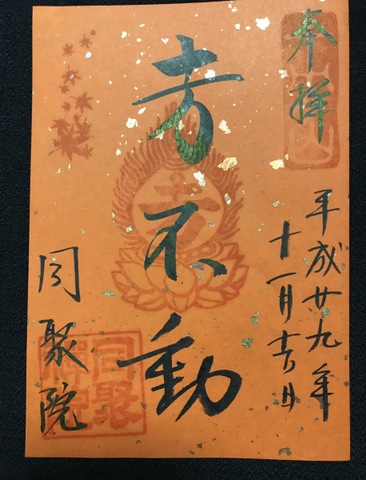 奉拝
平成廿九年
十一月吉日
十万不動
同聚院
同聚